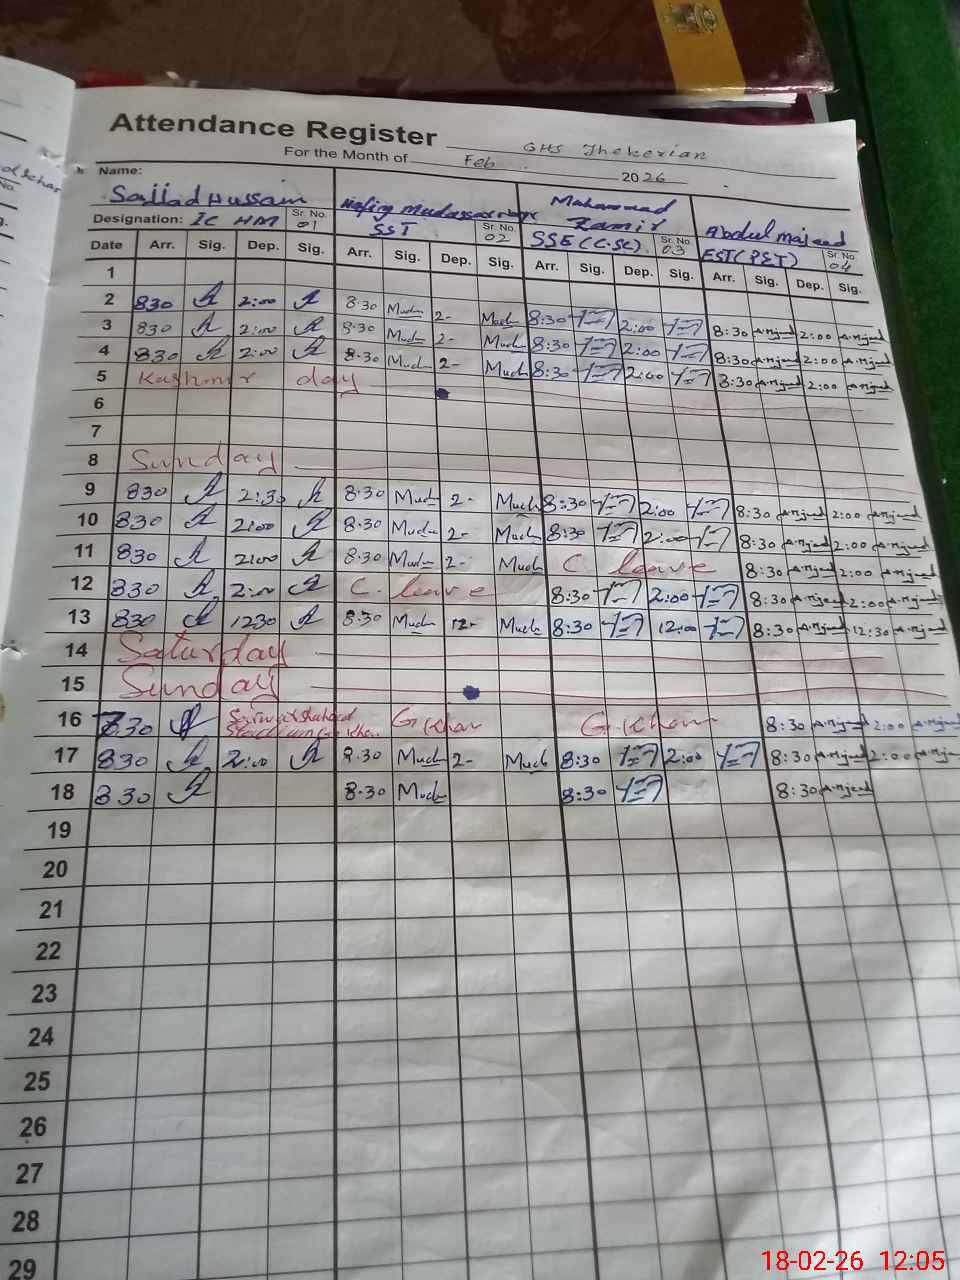 Attendance Register GHS Thekerian
For the Month of Feb 2026
Name: Sajjad Hussain Hafiz Muhammad Zamir Abdul Majeed
Designation: IC HM Sr. No. 01 SST Sr. No. 02 SSE (C.Sc) Sr. No. 03 EST (PST) Sr. No. 04
Date Arr. Sig. Dep. Sig. Arr. Sig. Dep. Sig. Arr. Sig. Dep. Sig. Arr. Sig. Dep. Sig.
1
2 830 2:00 8.30 Mud 2- Mud 8:30 2:00 8:30 Amjad 2:00 Amjad
3 830 2:00 8.30 Mud 2- Mud 8:30 2:00 8:30 Amjad 2:00 Amjad
4 830 2:00 8.30 Mud 2- Mud 8:30 2:00 8:30 Amjad 2:00 Amjad
5 Kashmir day
6
7
8 Sunday
9 830 2:30 8.30 Mud 2- Mud 8:30 2:00 8:30 Amjad 2:00 Amjad
10 830 2:00 8.30 Mud 2- Mud 8:30 2:00 8:30 Amjad 2:00 Amjad
11 830 2:00 8.30 Mud 2- Mud C leave 8:30 Amjad 2:00 Amjad
12 830 2:00 C. leave 8:30 2:00 8:30 Amjad 2:00 Amjad
13 830 1230 8.30 Mud 12- Mud 8:30 12:00 8:30 Amjad 12:30 Amjad
14 Saturday
15 Sunday
16 730 G Khan G. Khan 8:30 Amjad 2:00 Amjad
17 830 2:00 8.30 Mud 2- Mud 8:30 2:00 8:30 Amjad 2:00 Amjad
18 830 8.30 Mud 8:30 8:30 Amjad
19
20
21
22
23
24
25
26
27
28
29
18-02-26 12:05